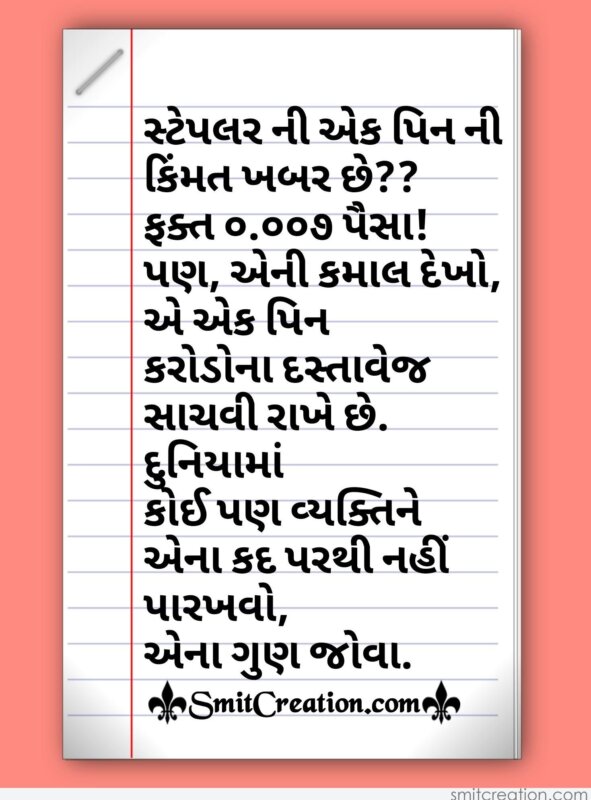 સ્ટેપલર ની એક પિન ની
કિંમત ખબર છે??
ફક્ત ૦.૦૦૭ પૈસા!
પણ, એની કમાલ દેખો,
એ એક પિન
કરોડોના દસ્તાવેજ
સાચવી રાખે છે.
દુનિયામાં
કોઈ પણ વ્યક્તિને
એના કદ પરથી નહીં
પારખવો,
એના ગુણ જોવા.
SmitCreation.com
smitcreation.com